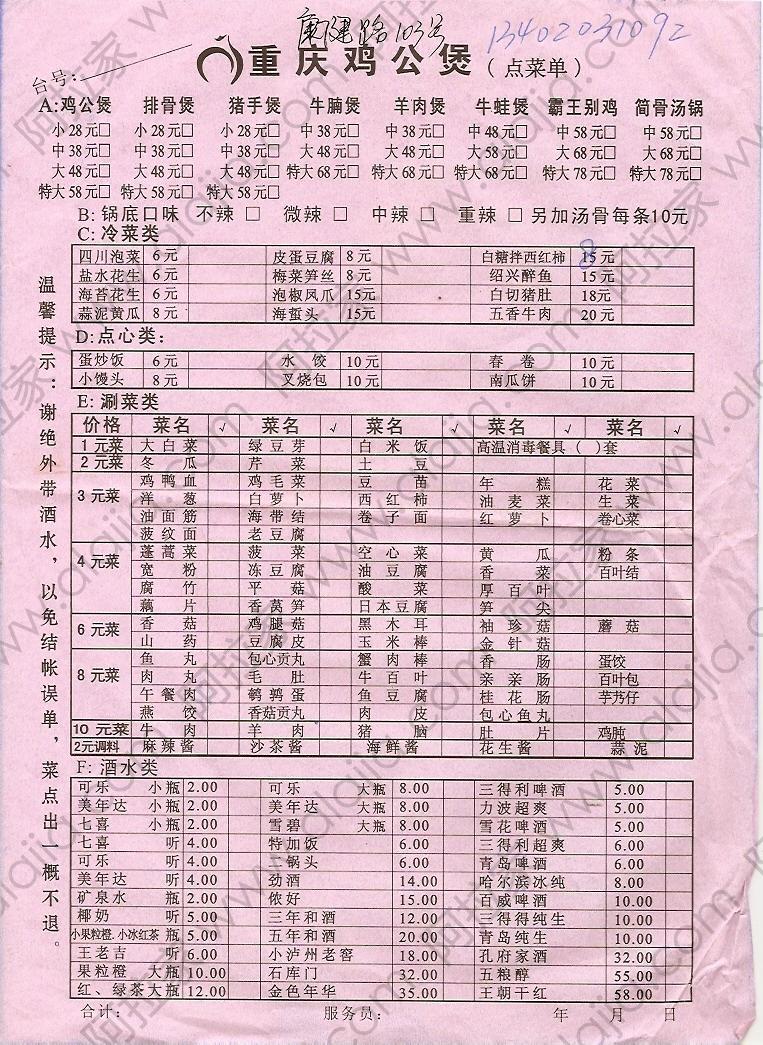 康建路103号 13402031092
台号:
重庆鸡公煲(点菜单)
A:鸡公煲 排骨煲 猪手煲 牛腩煲 羊肉煲 牛蛙煲 霸王别鸡 简骨汤锅
小28元□ 小28元□ 小28元□ 中38元□ 中38元□ 中48元□ 中58元□ 中58元□
中38元□ 中38元□ 中38元□ 大48元□ 大48元□ 大58元□ 大68元□ 大68元□
大48元□ 大48元□ 大48元□ 特大68元□ 特大68元□ 特大68元□ 特大78元□ 特大78元□
特大58元□ 特大58元□ 特大58元□
B:锅底口味 不辣□ 微辣□ 中辣□ 重辣□ 另加汤骨每条10元
C:冷菜类
四川泡菜 6元 皮蛋豆腐 8元 白糖拌西红柿 15元 8
盐水花生 6元 梅菜笋丝 8元 绍兴醉鱼 15元
海苔花生 6元 泡椒凤爪 15元 白切猪肚 18元
蒜泥黄瓜 8元 海蜇头 15元 五香牛肉 20元
D:点心类:
蛋炒饭 6元 水饺 10元 春卷 10元
小馒头 8元 叉烧包 10元 南瓜饼 10元
E:涮菜类
价格 菜名 √ 菜名 √ 菜名 √ 菜名 √ 菜名 √
1元菜 大白菜 绿豆芽 白米饭 高温消毒餐具( )套
2元菜 冬瓜 芹菜 土豆
3元菜 鸡鸭血 鸡毛菜 豆苗 年糕 花菜
洋葱 白萝卜 西红柿 油麦菜 生菜
油面筋 海带结 卷子面 红萝卜 卷心菜
菠纹面 老豆腐
4元菜 蓬蒿菜 菠菜 空心菜 黄瓜 粉条
宽粉 冻豆腐 油豆腐 香菜 百叶结
腐竹 平菇 酸菜 厚百叶
藕片 香莴笋 日本豆腐 笋尖
6元菜 香菇 鸡腿菇 黑木耳 袖珍菇 蘑菇
山药 豆腐皮 玉米棒 金针菇
8元菜 鱼丸 包心贡丸 蟹肉棒 香肠 蛋饺
肉丸 毛肚 牛百叶 亲亲肠 百叶包
午餐肉 鹌鹑蛋 鱼豆腐 桂花肠 芋艿仔
燕饺 香菇贡丸 肉皮 包心鱼丸
10元菜 牛肉 羊肉 猪脑 肚片 鸡肫
2元调料 麻辣酱 沙茶酱 海鲜酱 花生酱 蒜泥
F:酒水类
可乐 小瓶 2.00 可乐 大瓶 8.00 三得利啤酒 5.00
美年达 小瓶 2.00 美年达 大瓶 8.00 力波超爽 5.00
七喜 小瓶 2.00 雪碧 大瓶 8.00 雪花啤酒 5.00
七喜 听 4.00 特加饭 6.00 三得利超爽 6.00
可乐 听 4.00 二锅头 6.00 青岛啤酒 6.00
美年达 听 4.00 劲酒 14.00 哈尔滨冰纯 8.00
矿泉水 瓶 2.00 侬好 15.00 百威啤酒 10.00
椰奶 听 5.00 三年和酒 12.00 三得得纯生 10.00
小果粒橙.小冰红茶 瓶 5.00 五年和酒 20.00 青岛纯生 10.00
王老吉 听 6.00 小泸州老窖 18.00 孔府家酒 32.00
果粒橙 大瓶 10.00 石库门 32.00 五粮醇 55.00
红、绿茶大瓶 12.00 金色年华 35.00 王朝干红 58.00
合计: 服务员: 年 月 日
温馨提示:谢绝外带酒水,以免结帐误单,菜点出一概不退。
阿拉家 www.alajia.com